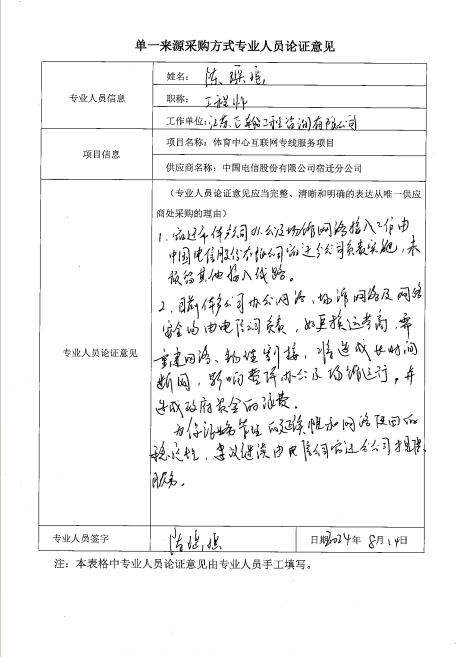 单一来源采购方式专业人员论证意见
专业人员信息
姓名：陈
职称：工程师
工作单位：江苏 工程咨询有限公司
项目信息
项目名称：体育中心互联网专线服务项目
供应商名称：中国电信股份有限公司宿迁分公司
专业人员论证意见
（专业人员论证意见应当完整、清晰和明确的表达从唯一供应
商处采购的理由）
1、宿迁 公司办公及场馆网络接入工作由
中国电信股份有限公司宿迁分公司负责实施，未
预留其他接入线路。
2、目前体 公司办公网络、场馆网络及网络
安全均由电信公司负责，如更换运营商，需
重建网络、 割接，将造成长时间
断网，影响整体办公及场馆运行，并
造成政府资金的浪费。
为保证业务 的延续性和网络使用的
稳定性，建议继续由电信公司宿迁分公司提供
服务。
专业人员签字
日期2024年 8月14日
注：本表格中专业人员论证意见由专业人员手工填写。